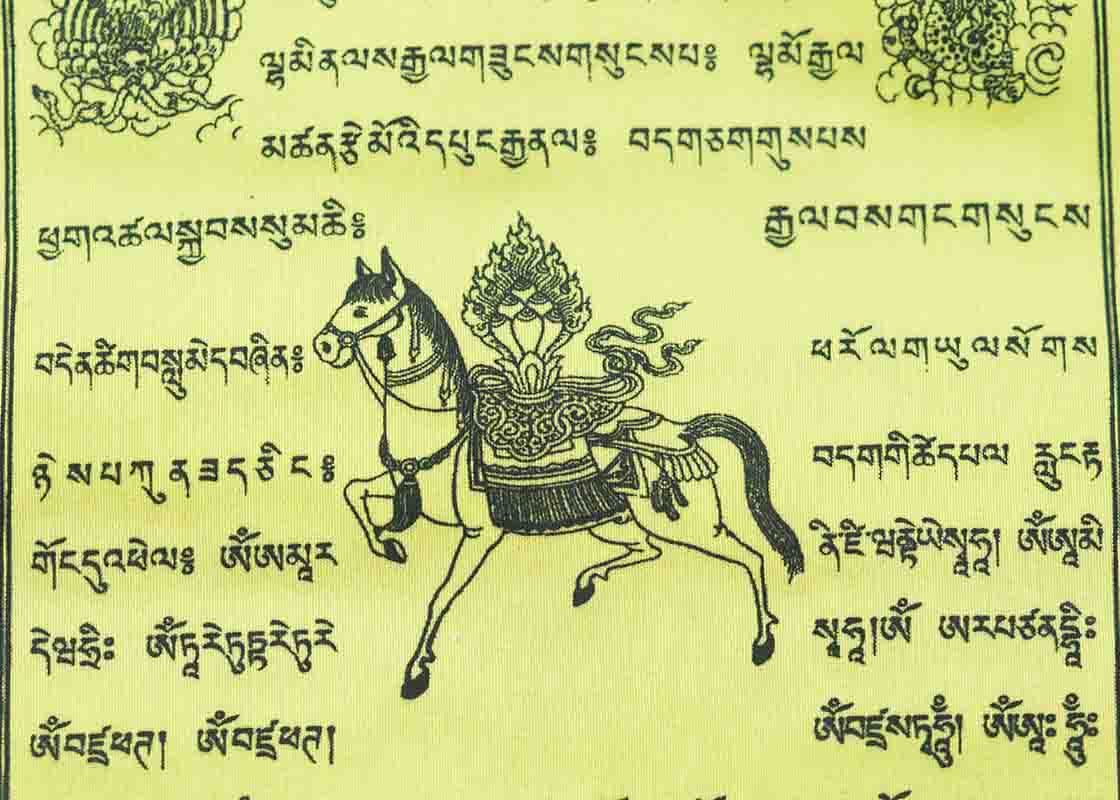 ལྷ་མི་ན་ལས་རྒྱལ་གཟུངས་གསུངས་པ༔ ལྷ་མོ་རྒྱལ
མཚན་རྩེ་མོའི་དཔུང་རྒྱན་ལ༔ བདག་ཅག་གུས་པས
ཕྱག་འཚལ་སྐྱབས་སུ་མཆི༔ རྒྱལ་བས་གང་གསུངས
བདེན་ཚིག་བསླུ་མེད་བཞིན༔ ཕ་རོལ་གཡུལ་སོགས
ཉེས་པ་ཀུན་ཟད་ཅིང༔ བདག་གི་ཚེ་དཔལ རླུང་རྟ
གོང་དུ་འཕེལ༔ ༀ་ཨ་མཱ་ར ནི་ཛཱི་ཝནྟེ་ཡེ་སྭཱ་ཧཱ། ༀ་ཨཱ་མི
དེ་ཝ་ཧྲཱིཿ ༀ་ཏཱ་རེ་ཏུཏྟཱ་རེ་ཏུ་རེ སྭཱ་ཧཱ།ༀ ཨ་ར་པ་ཙ་ན་དྷཱིཿ
ༀ་བཛྲ་ཕཊ། ༀ་བཛྲ་ཕཊ། ༀ་བཛྲ་སཏྭ་ཧཱུྃ། ༀ་ཨཱཿ་ཧཱུྃ༔